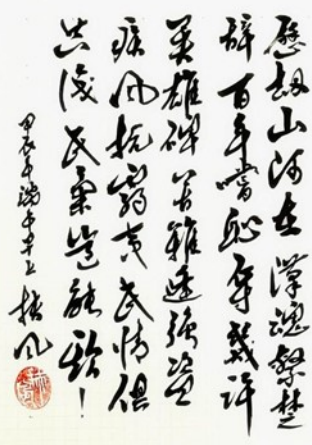 歷劫山河在漢魂繫楚
辭百年嚐恥辱幾許
英雄碑苦難強盜
疾風抗夷民情俱
共識民氣豈能欺！
甲辰年端午
風